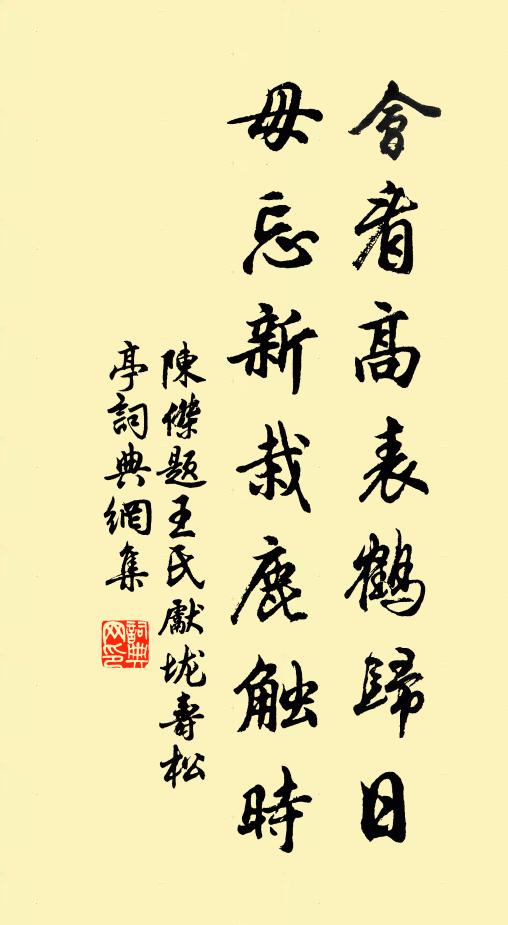 會看高表鶴歸日
毋忘新栽鹿触時
陳傑題王氏獻垅壽松
亭詞典網集
詞典網印